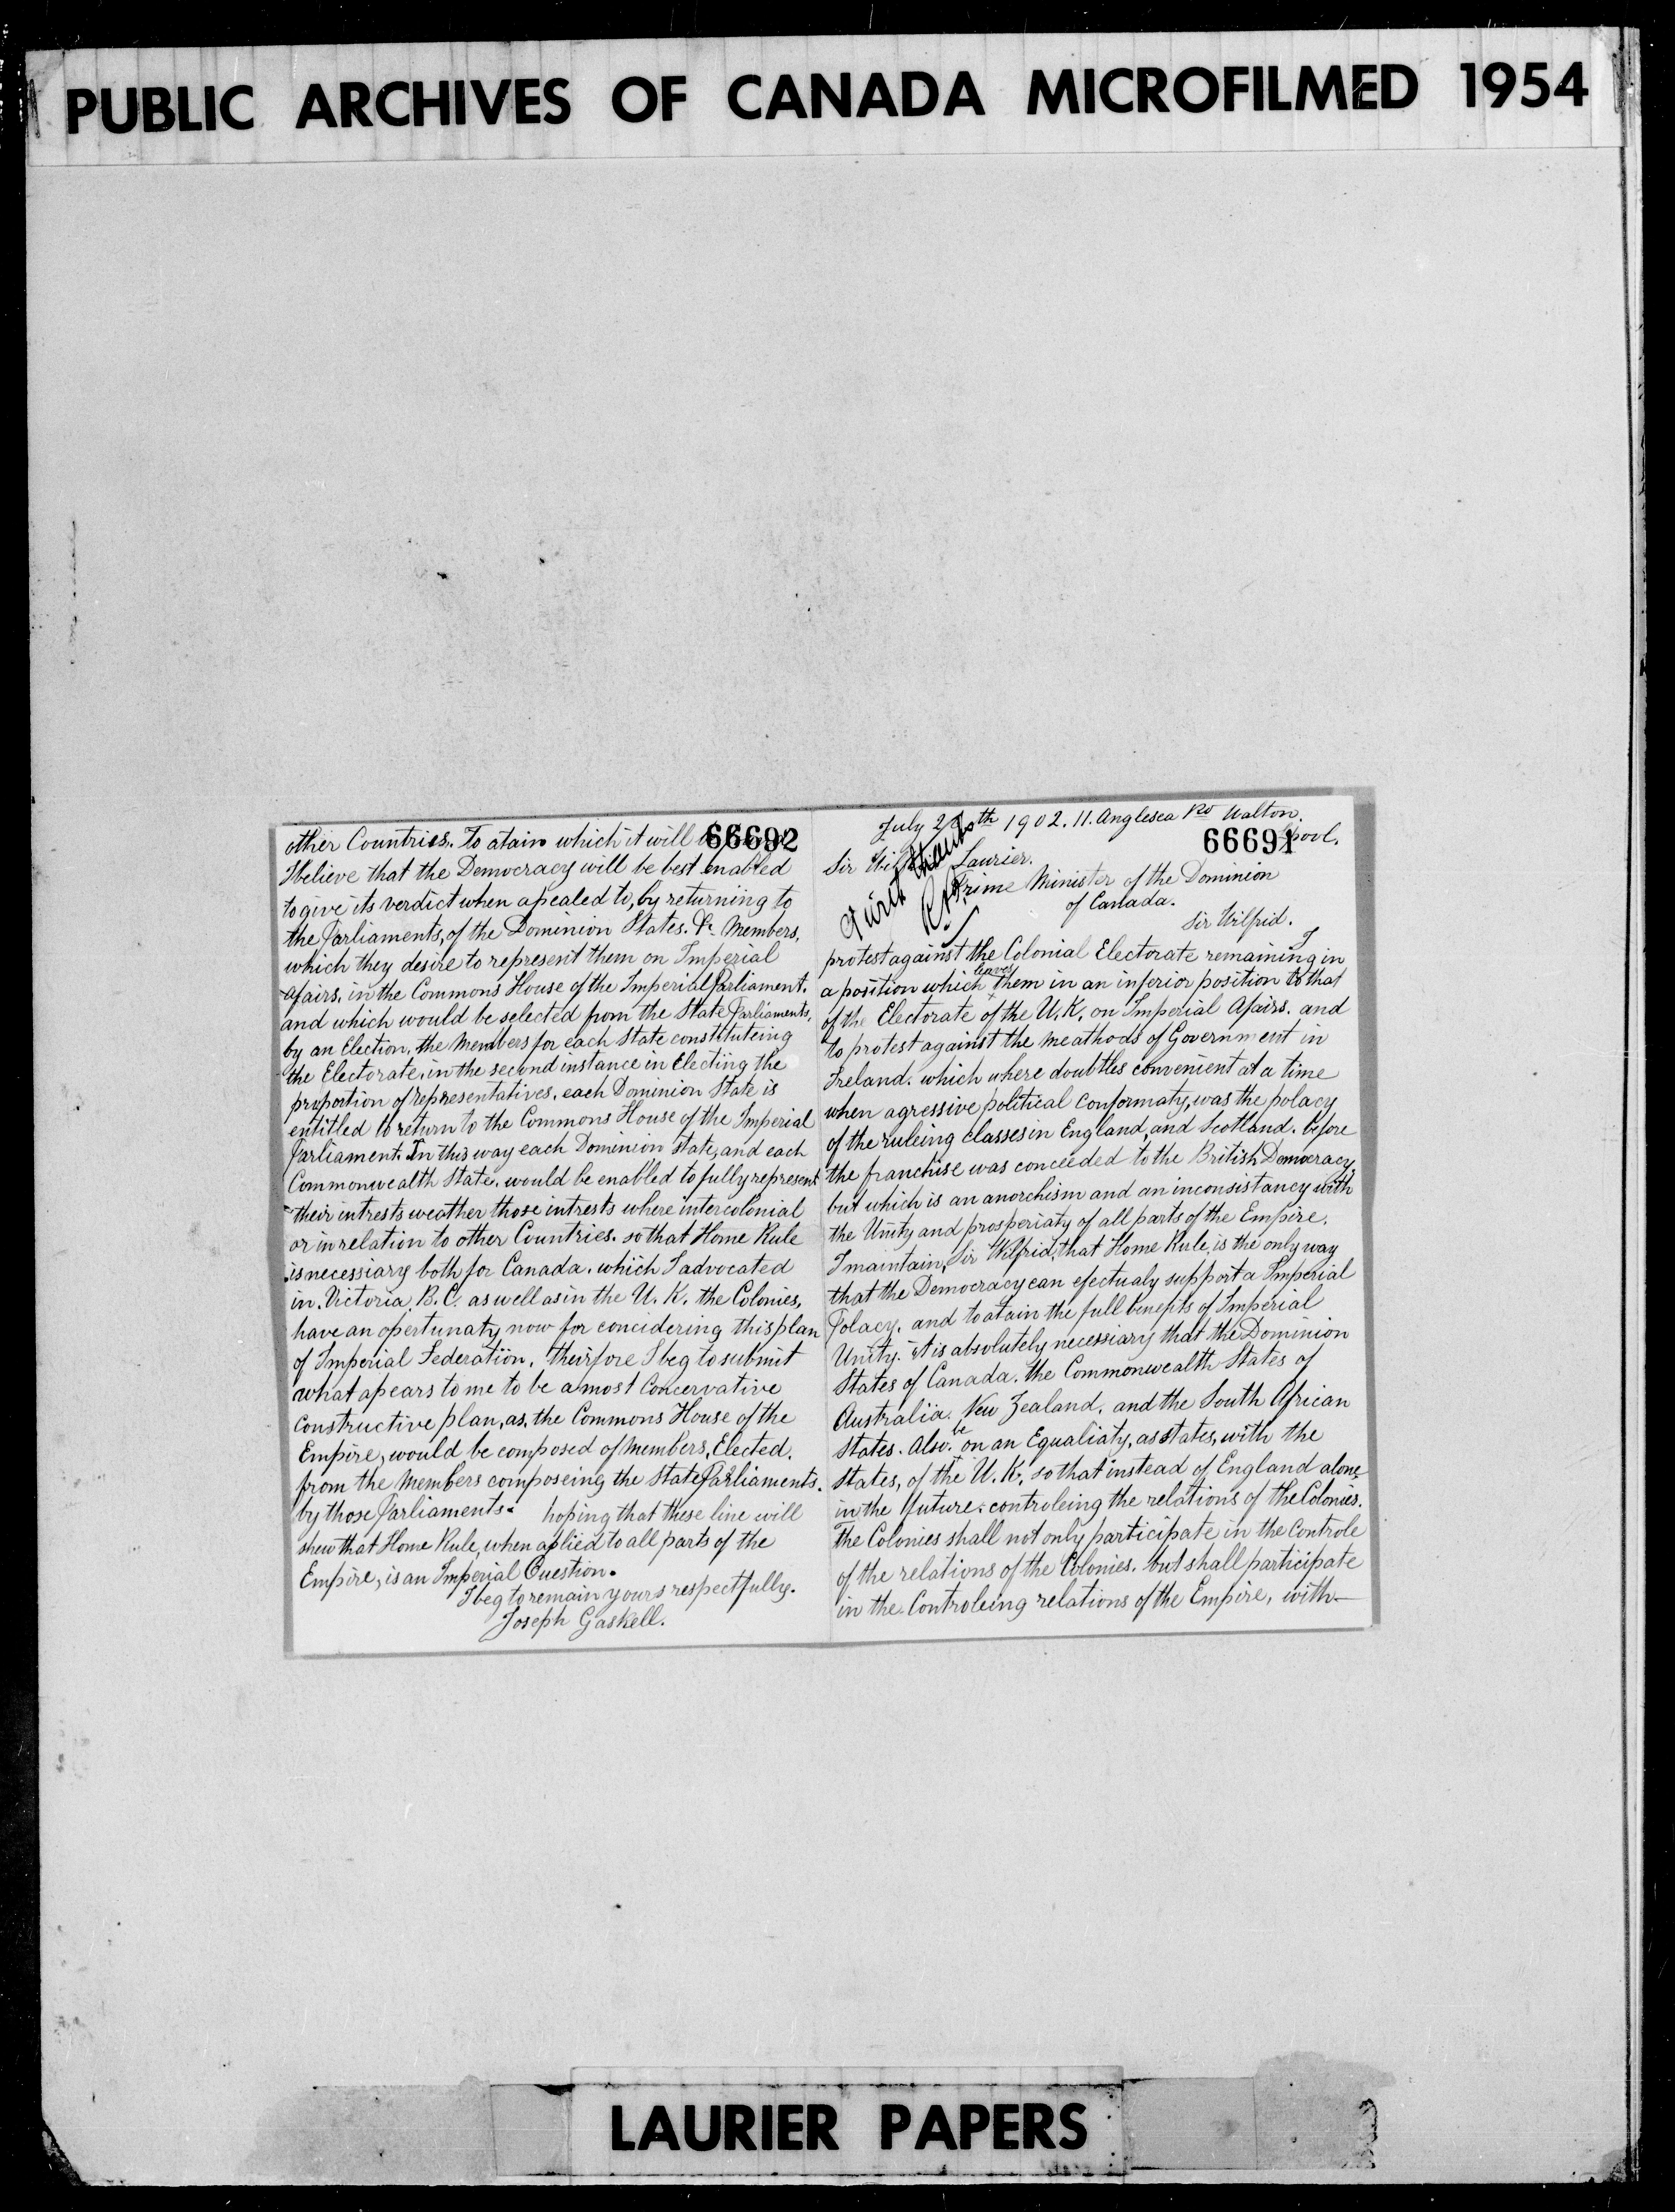 PUBLIC ARCHIVES OF CANADA MICROFILMED 1954
July 28th 1902. 11. Anglesea Rd Walton.
66691
Lpool.
Sir Laurier.
Prime Minister of the Dominion
of Canada.
thanks
Sir Wilfrid.
I
protest against the Colonial Electorate remaining in
a position which leaves them in an inferior position to that
of the Electorate of the U.K. on Imperial Afairs. and
to protest against the meathods of Government in
Ireland. which where doubtles convenient at a time
when agressive political conformaty, was the polacy
of the ruleing classes in England, and Scotland. before
the franchise was conceeded to the British Democracy,
but which is an anorchism and an inconsistancy with
the Unity and prosperiaty of all parts of the Empire.
I maintain, Sir Wilfrid, that Home Rule, is the only way
that the Democracy can efectualy support a Imperial
Polacy. and to atain the full benefits of Imperial
Unity. it is absolutely necessiary that the Dominion
States of Canada. the Commonwealth States of
Australia. New Zealand. and the South African
States. Also. be on an Equaliaty, as states, with the
States, of the U.K. so that instead of England alone,
in the future. controleing the relations of the Colonies.
The Colonies shall not only participate in the Controle
of the relations of the Colonies. but shall participate
in the Controleing relations of the Empire, with—
66692
other Countries. To atain which it will
I believe that the Democracy will be best enabled
to give its verdict when apealed to, by returniing to
the Parliaments, of the Dominion States. &c Members,
which they desire to represent them on Imperial
Afairs, in the Commons House of the Imperial Parliament.
and which would be selected from the State Parliaments,
by an Election, the Members for each State constituteing
the Electorate, in the second instance in Electiing the
proportion of representatives, each Dominion State is
entitled to return to the Commons House of the Imperial
Parliament. In this way each Dominion State, and each
Commonwealth State, would be enabled to fully represent
their intrests weather those intrests where intercolonial
or in relation to other Countries. so that Home Rule
is necessiary both for Canada. which I advocated
in. Victoria, B.C. as well as in the U.K. the Colonies,
have an opertunaty now for concidering this plan
of Imperial Federation, theirfore I beg to submit
what apears to me to be a most Concervative
Constructive plan, as, the Commons House of the
Empire, would be composed of Members, Elected.
from the Members composeing the State Parliaments.
by those Parliaments. hoping that these line will
shew that Home Rule, when aplied to all parts of the
Empire, is an Imperial Question.
I beg to remain yours respectfully.
Joseph Gaskell.
LAURIER PAPERS